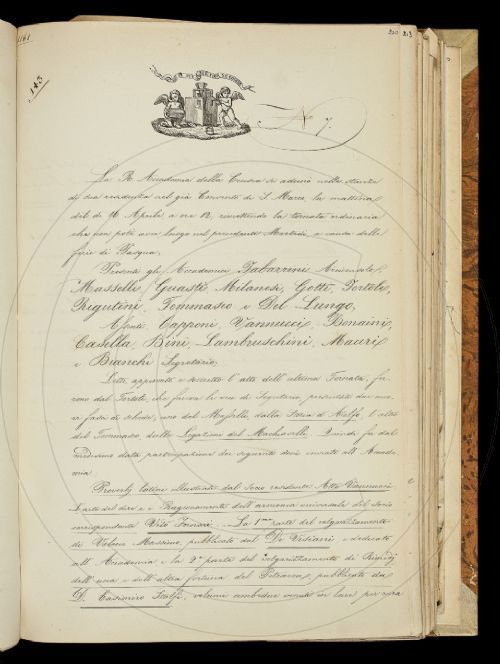 143
210 213
N.° 7.
La R. Accademia della Crusca si adunò nelle stanze
di sua residenza nel già Convento di S. Marco, la mattina
del dì 26 Aprile a ore 12, rimettendo la tornata ordinaria
che non potè aver luogo nel precedente Martedì, a causa delle
ferie di Pasqua.
Presenti gli Accademici Tabarrini Arciconsolo,
Masselli, Guasti, Milanesi, Gotti, Tortoli,
Rigutini, Tommaseo e Del Lungo.
Assenti Capponi, Vannucci, Bonaini,
Casella, Bini, Lambruschini, Mauri
e Bianchi Segretario;
Letto, approvato e corretto l'atto dell'ultima Tornata, fu-
rono dal Tortoli, che faceva le veci di Segretario, presentati due nuo-
vi fasci di schede, uno del Masselli, dalla Storia d'Aiolfo, l'altro
del Tommaseo, delle Legazioni del Machiavelli. Quindi fu dal
medesimo data partecipazione dei seguenti doni inviati all'Accade-
mia
Proverbj latini illustrati dal Socio residente Atto Vannucci.
L'arte del dire, e Ragionamento dell'armonia universale del Socio
corrispondente Vito Fornari. - La 1.ma parte del volgarizzamento
di Valerio Massimo, pubblicato dal De Visiani, e dedicato
all'Accademia e la 2.a parte del volgarizzamento de' Rimedj
dell'una e dell'altra fortuna del Petrarca, pubblicato da
D. Casimiro Stolfi, volumi ambedue venuti in luce per cura